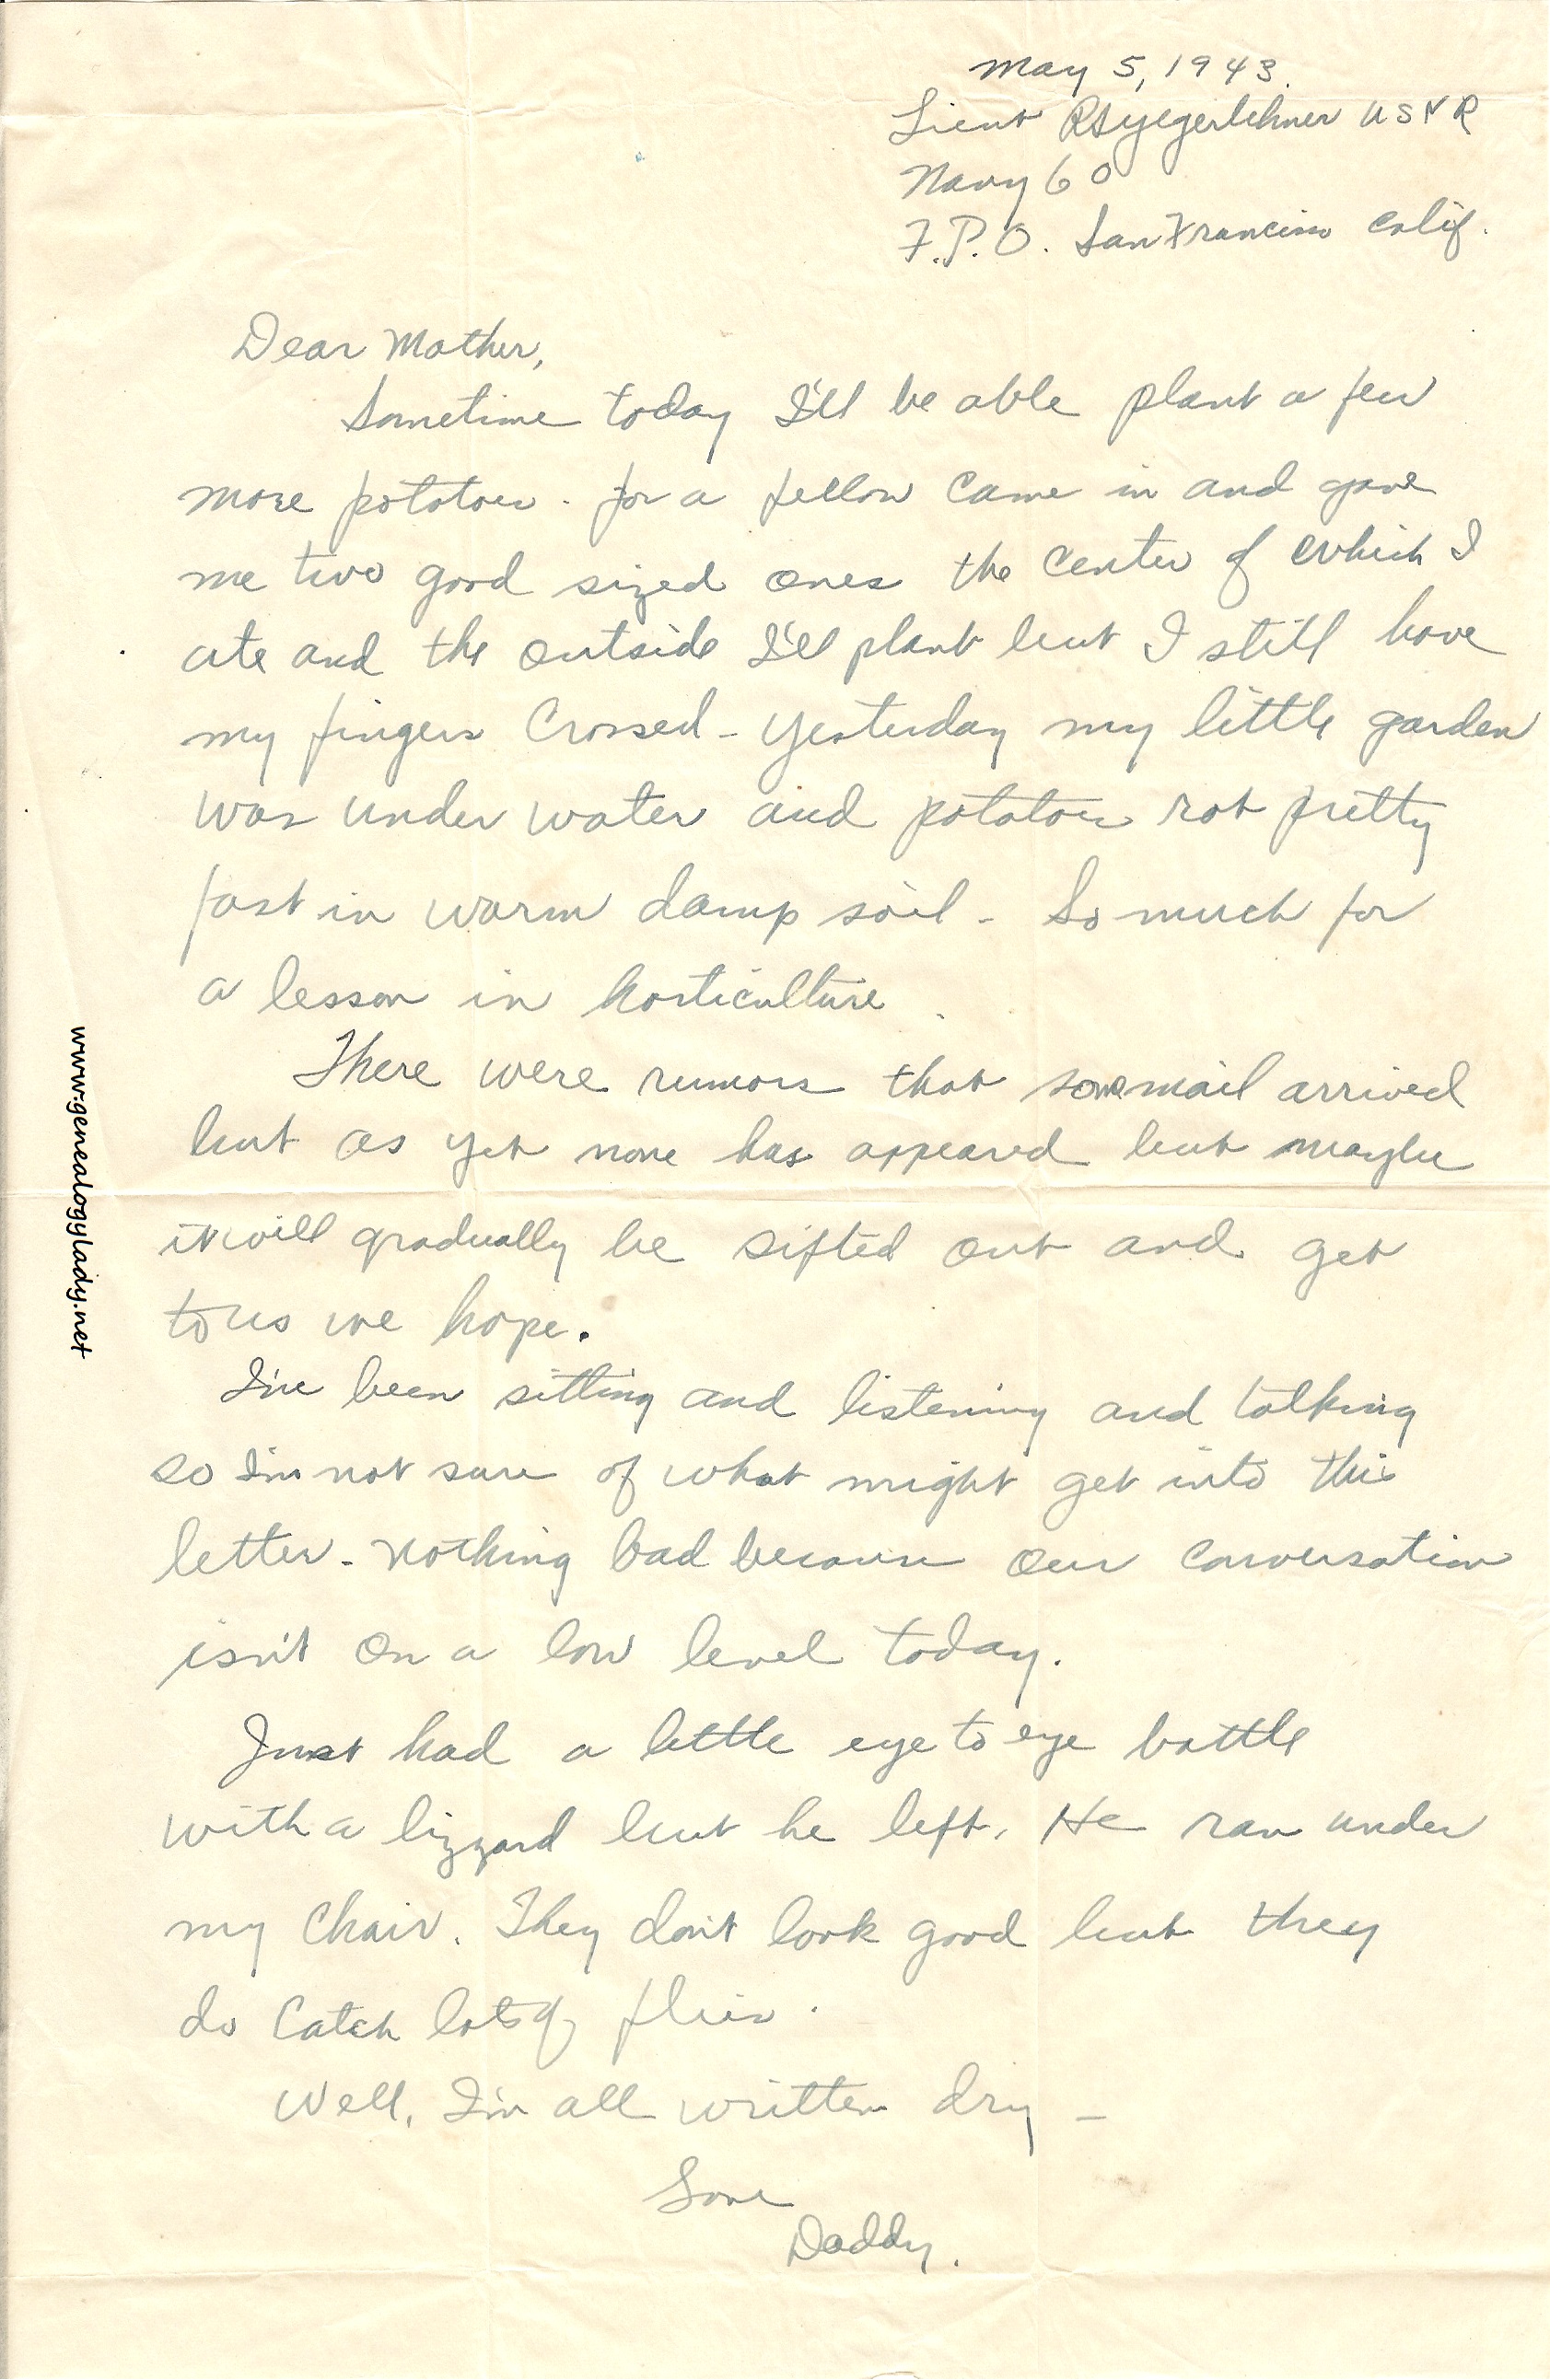 May 5, 1943.
Lieut RSYegerlehner USNR
Navy 60
F.P.O. San Francisco Calif.
Dear Mother,
Sometime today I'll be able plant a few
more potatoes. for a fellow came in and gave
me two good sized ones the center of which I
ate and the outside I'll plant but I still have
my fingers crossed - Yesterday my little garden
was under water and potatoes rot pretty
fast in warm damp soil - So much for
a lesson in horticulture.
There were rumors that some mail arrived
but as yet none has appeared but maybe
it will gradually be sifted out and get
to us we hope.
I've been sitting and listening and talking
so I'm not sure of what might get into this
letter - nothing bad because our conversation
isn't on a low level today.
Just had a little eye to eye battle
with a lizzard but he left. He ran under
my chair. They don't look good but they
do catch lots of flies.
Well, I'm all written dry -
Love
Daddy.
www.genealogylady.net